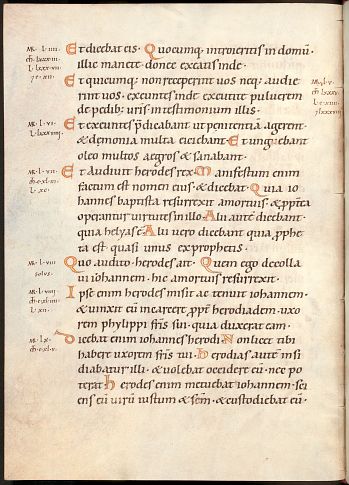 Et dicebat eis. Quocumq; introieritis in domū.
illic manete donec exeatis inde.
Et quicumq; non receperint uos neq; audie
rint uos. exeuntes inde excutite puluerem
de pedib; uris in testimonium illis.
Et exeuntes p̄dicabant ut penitentiā agerent.
& demonia multa eiciebant. Et unguebant
oleo multos aegros & sanabant.
Et audiuit herodes rex. Manifestum enim
factum est nomen eius. & dicebat. Quia io
hannes baptista resurrexit a mortuis. & ppt̄a
operantur uirtutes in illo. Alii aut̄ dicebant.
quia helyas ē. Alii uero dicebant quia pphe
ta est quasi unus ex prophetis.
Quo audito herodes ait. Quem ego decolla
ui iohannem. hic a mortuis resurrexit.
Ipse enim herodes misit ac tenuit iohannem.
& uinxit eū in carcere. ppt̄ herodiadem uxo
rem phylippi fr̄is sui. quia duxerat eam.
Dicebat enim iohannes herodi. Non licet tibi
habert uxorem fr̄is tui. herodias aut̄ insi
diabatur illi. & uolebat occidere eū. nec po
terat. herodes enim metuebat iohannem. sci
ens eū uirū iustum & sc̄m. & custodiebat eū.